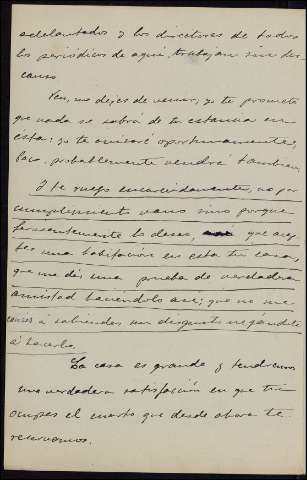 adelantados y los directores de todos
los periódicos de aquí, trabajan sin des-
canso.
Ven, no dejes de venir; yo te prometo
que nada se sabrá de tu estancia en
ésta: yo te avisaré oportunamente,
Paco, probablemente vendrá tambien.
Y te ruego encarecidamente, no por
cumplimiento vano sino porque
fervientemente lo deseo, que acep-
tes una habitación en esta tu casa,
que me dés una prueba de verdadera
amistad haciéndolo asi; que no me
causes á sabiendas un disgusto negándote
á hacerlo.
La casa es grande y tendremos
una verdadera satisfacción en que tu
ocupes el cuarto que desde ahora te
reservamos.